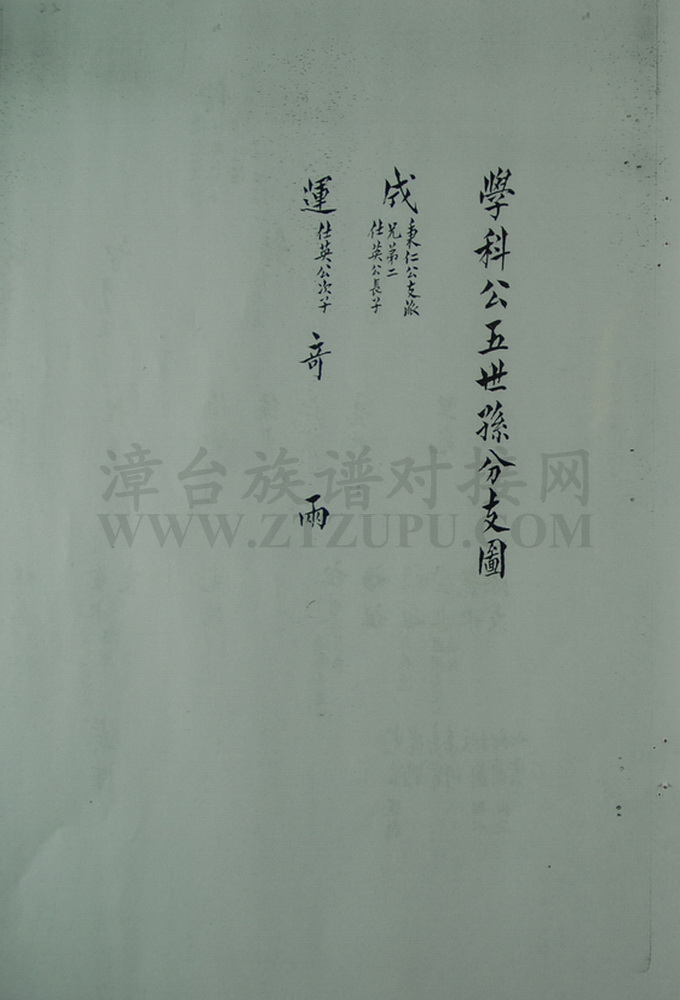 學科公五世孫分支圖
成
秉仁公支派
兄弟二
仕英公長子
運
仕英公次子
奇
雨
漳台族谱对接网
WWW.ZTZUPU.COM